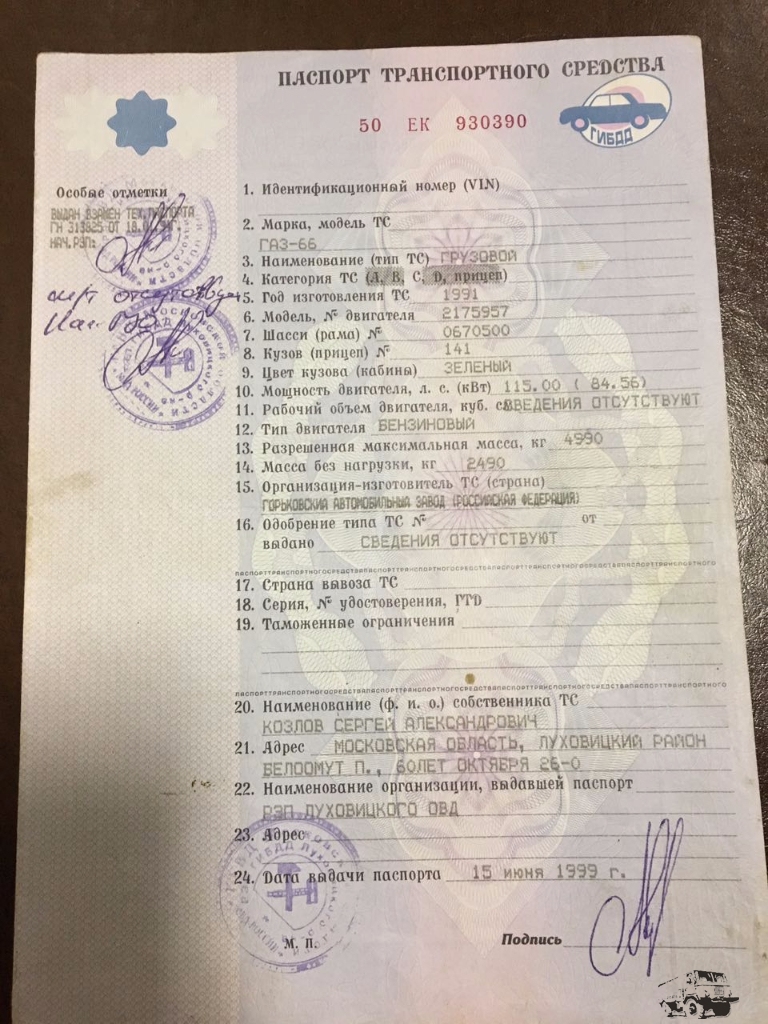 ПАСПОРТ ТРАНСПОРТНОГО СРЕДСТВА
50 ЕК 930390
ГИБДД
Особые отметки
ВЫДАН ВЗАМЕН ТЕХ.ПАСПОРТА
ГН 313825 ОТ 18.
НАЧ.РЭП:
1. Идентификационный номер (VIN)
2. Марка, модель ТС
ГАЗ-66
3. Наименование (тип ТС) ГРУЗОВОЙ
4. Категория ТС (А, В, С, D, прицеп)
5. Год изготовления ТС 1991
6. Модель, № двигателя 2175957
7. Шасси (рама) № 0670500
8. Кузов (прицеп) № 141
9. Цвет кузова (кабины) ЗЕЛЕНЫЙ
10. Мощность двигателя, л. с. (кВт) 115.00 ( 84.56)
11. Рабочий объем двигателя, куб. см СВЕДЕНИЯ ОТСУТСТВУЮТ
12. Тип двигателя БЕНЗИНОВЫЙ
13. Разрешенная максимальная масса, кг 4990
14. Масса без нагрузки, кг 2490
15. Организация-изготовитель ТС (страна)
ГОРЬКОВСКИЙ АВТОМОБИЛЬНЫЙ ЗАВОД (РОССИЙСКАЯ ФЕДЕРАЦИЯ)
16. Одобрение типа ТС № от
выдано СВЕДЕНИЯ ОТСУТСТВУЮТ
17. Страна вывоза ТС
18. Серия, № удостоверения, ГТD
19. Таможенные ограничения
20. Наименование (ф. и. о.) собственника ТС
КОЗЛОВ СЕРГЕЙ АЛЕКСАНДРОВИЧ
21. Адрес МОСКОВСКАЯ ОБЛАСТЬ, ЛУХОВИЦКИЙ РАЙОН
БЕЛООМУТ П., 60ЛЕТ ОКТЯБРЯ 26-0
22. Наименование организации, выдавшей паспорт
РЭП ЛУХОВИЦКОГО ОВД
23. Адрес
24. Dата выдачи паспорта 15 июня 1999 г.
М. П.
Подпись